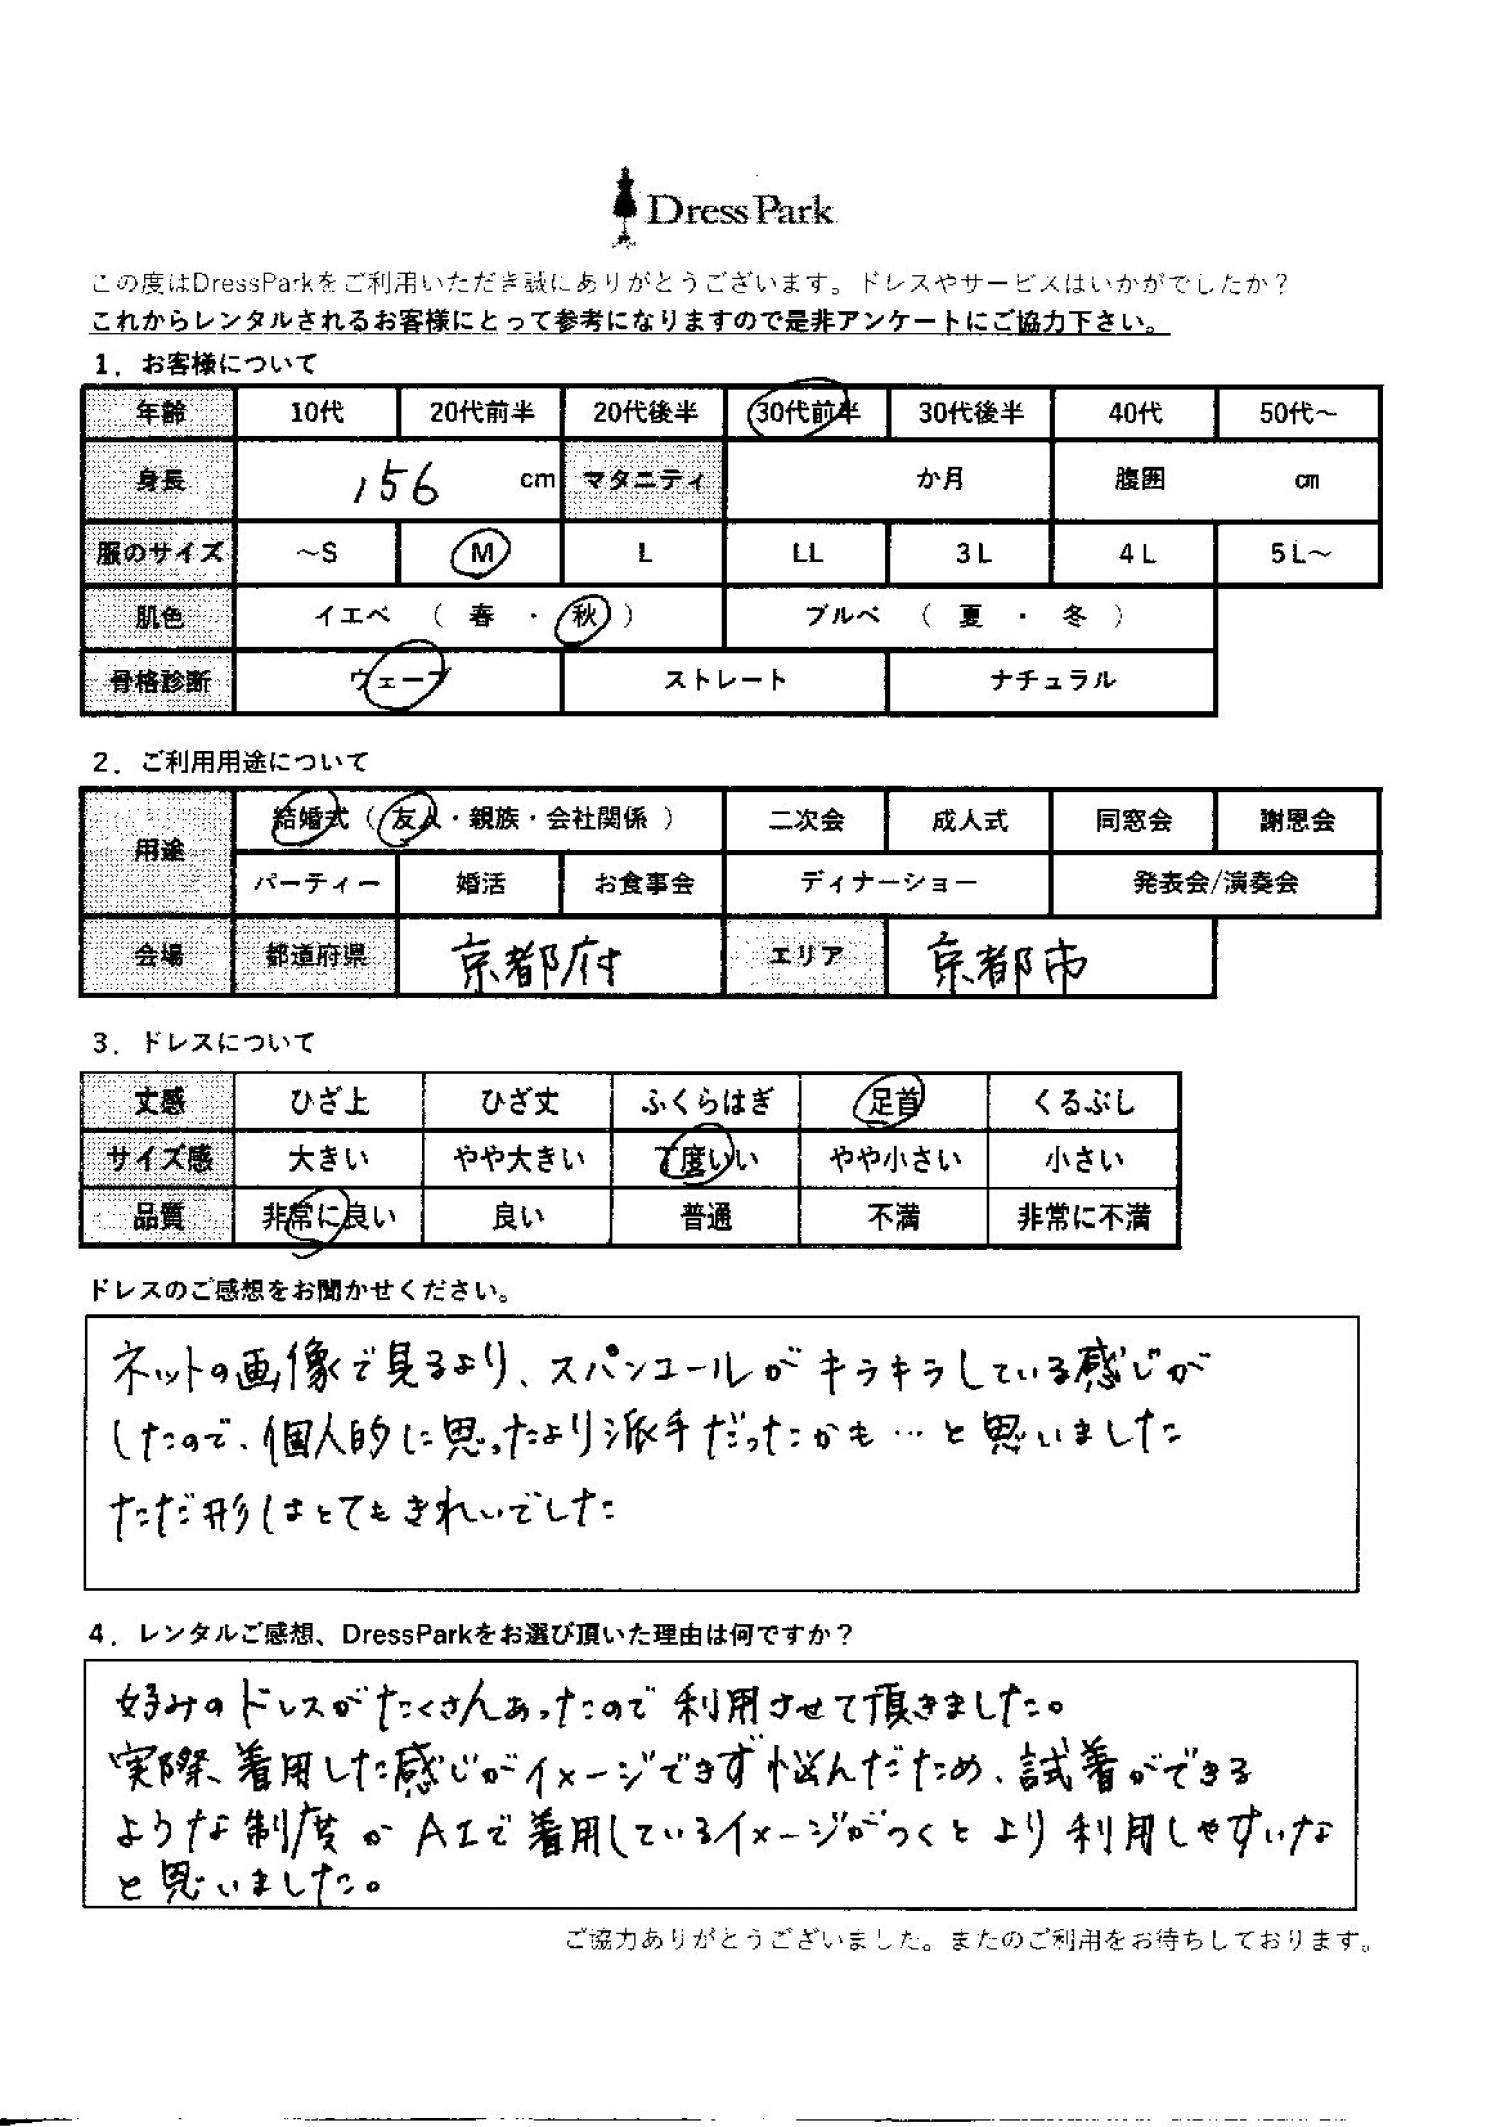 DressPark
この度はDressParkをご利用いただき誠にありがとうございます。ドレスやサービスはいかがでしたか？
これからレンタルされるお客様にとって参考になりますので是非アンケートにご協力下さい。
1．お客様について
年齢 10代 20代前半 20代後半 30代前半 30代後半 40代 50代～
身長 156 cm マタニティ か月 腹囲 cm
服のサイズ ～S M L LL 3L 4L 5L～
肌色 イエベ （ 春 ・ 秋 ） ブルベ （ 夏 ・ 冬 ）
骨格診断 ウェーブ ストレート ナチュラル
2．ご利用用途について
用途 結婚式（ 友人・親族・会社関係 ） 二次会 成人式 同窓会 謝恩会
パーティー 婚活 お食事会 ディナーショー 発表会/演奏会
会場 都道府県 京都府 エリア 京都市
3．ドレスについて
丈感 ひざ上 ひざ丈 ふくらはぎ 足首 くるぶし
サイズ感 大きい やや大きい 丁度いい やや小さい 小さい
品質 非常に良い 良い 普通 不満 非常に不満
ドレスのご感想をお聞かせください。
ネットの画像で見るより、スパンコールがキラキラしている感じが
したので、個人的に思ったより派手だったかも…と思いました
ただ形はとてもきれいでした
4．レンタルご感想、DressParkをお選び頂いた理由は何ですか？
好みのドレスがたくさんあったので利用させて頂きました。
実際、着用した感じがイメージできず悩んだため、試着ができる
ような制度かAIで着用しているイメージがつくとより利用しやすいな
と思いました。
ご協力ありがとうございました。またのご利用をお待ちしております。